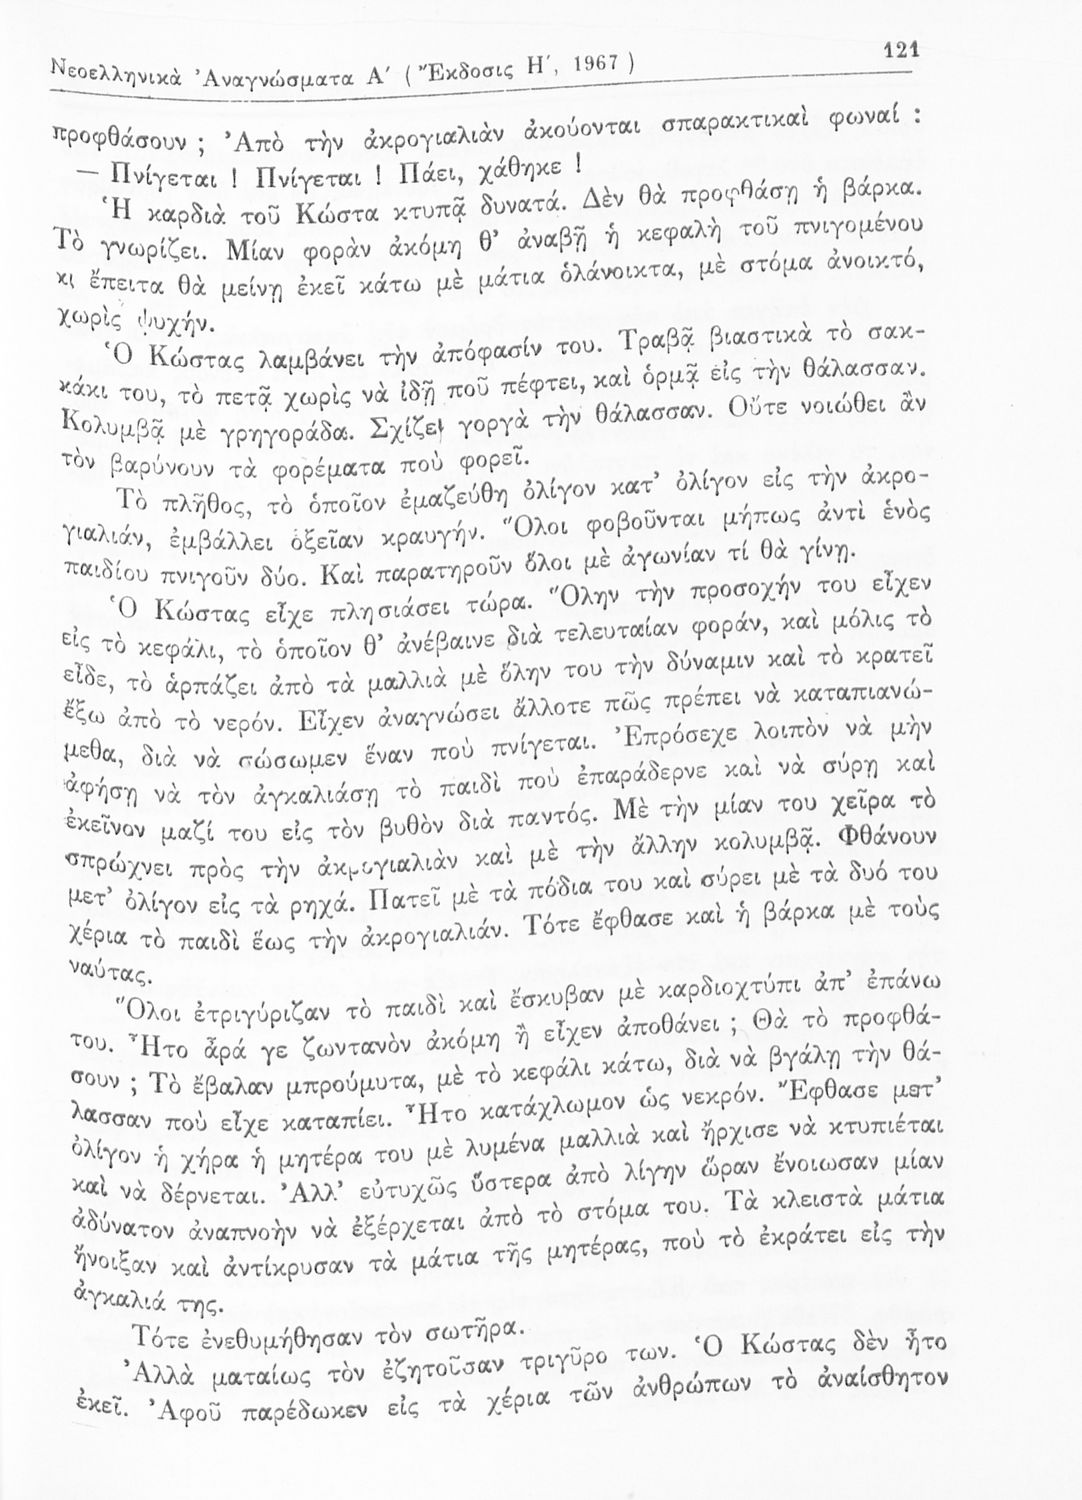 Νεοελληνικὰ Ἀναγνώσματα Α΄ ( Ἔκδοσις Η΄, 1967 )
121
προφθάσουν ; Ἀπὸ τὴν ἀκρογιαλιὰν ἀκούονται σπαρακτικαὶ φωναί :
— Πνίγεται ! Πνίγεται ! Πάει, χάθηκε !
Ἡ καρδιὰ τοῦ Κώστα κτυπᾷ δυνατά. Δὲν θὰ προφθάσῃ ἡ βάρκα.
Τὸ γνωρίζει. Μίαν φορὰν ἀκόμη θ’ ἀναβῇ ἡ κεφαλὴ τοῦ πνιγομένου
κι ἔπειτα θὰ μείνῃ ἐκεῖ κάτω μὲ μάτια ὁλάνοικτα, μὲ στόμα ἀνοικτό,
χωρὶς ψυχήν.
Ὁ Κώστας λαμβάνει τὴν ἀπόφασίν του. Τραβᾷ βιαστικὰ τὸ σακ-
κάκι του, τὸ πετᾷ χωρὶς νὰ ἰδῇ ποῦ πέφτει, καὶ ὁρμᾷ εἰς τὴν θάλασσαν.
Κολυμβᾷ μὲ γρηγοράδα. Σχίζει γοργὰ τὴν θάλασσαν. Οὔτε νοιώθει ἂν
τὸν βαρύνουν τὰ φορέματα ποὺ φορεῖ.
Τὸ πλῆθος, τὸ ὁποῖον ἐμαζεύθη ὀλίγον κατ’ ὀλίγον εἰς τὴν ἀκρο-
γιαλιάν, ἐμβάλλει ὀξεῖαν κραυγήν. Ὅλοι φοβοῦνται μήπως ἀντὶ ἑνὸς
παιδίου πνιγοῦν δύο. Καὶ παρατηροῦν ὅλοι μὲ ἀγωνίαν τί θὰ γίνῃ.
Ὁ Κώστας εἶχε πλησιάσει τώρα. Ὅλην τὴν προσοχήν του εἶχεν
εἰς τὸ κεφάλι, τὸ ὁποῖον θ’ ἀνέβαινε διὰ τελευταίαν φοράν, καὶ μόλις τὸ
εἶδε, τὸ ἁρπάζει ἀπὸ τὰ μαλλιὰ μὲ ὅλην του τὴν δύναμιν καὶ τὸ κρατεῖ
ἔξω ἀπὸ τὸ νερόν. Εἶχεν ἀναγνώσει ἄλλοτε πῶς πρέπει νὰ καταπιανώ-
μεθα, διὰ νὰ σώσωμεν ἕναν ποὺ πνίγεται. Ἐπρόσεχε λοιπὸν νὰ μὴν
ἀφήσῃ νὰ τὸν ἀγκαλιάσῃ τὸ παιδὶ ποὺ ἐπαράδερνε καὶ νὰ σύρῃ καὶ
ἐκεῖνον μαζί του εἰς τὸν βυθὸν διὰ παντός. Μὲ τὴν μίαν του χεῖρα τὸ
σπρώχνει πρὸς τὴν ἀκρογιαλιὰν καὶ μὲ τὴν ἄλλην κολυμβᾷ. Φθάνουν
μετ’ ὀλίγον εἰς τὰ ρηχά. Πατεῖ μὲ τὰ πόδια του καὶ σύρει μὲ τὰ δυό του
χέρια τὸ παιδὶ ἕως τὴν ἀκρογιαλιάν. Τότε ἔφθασε καὶ ἡ βάρκα μὲ τοὺς
ναύτας.
Ὅλοι ἐτριγύριζαν τὸ παιδὶ καὶ ἔσκυβαν μὲ καρδιοχτύπι ἀπ’ ἐπάνω
του. Ἦτο ἆρά γε ζωντανὸν ἀκόμη ἢ εἶχεν ἀποθάνει ; Θὰ τὸ προφθά-
σουν ; Τὸ ἔβαλαν μπρούμυτα, μὲ τὸ κεφάλι κάτω, διὰ νὰ βγάλῃ τὴν θά-
λασσαν ποὺ εἶχε καταπίει. Ἦτο κατάχλωμον ὡς νεκρόν. Ἔφθασε μετ’
ὀλίγον ἡ χήρα ἡ μητέρα του μὲ λυμένα μαλλιὰ καὶ ἤρχισε νὰ κτυπιέται
καὶ νὰ δέρνεται. Ἀλλ’ εὐτυχῶς ὕστερα ἀπὸ λίγην ὥραν ἔνοιωσαν μίαν
ἀδύνατον ἀναπνοὴν νὰ ἐξέρχεται ἀπὸ τὸ στόμα του. Τὰ κλειστὰ μάτια
ἤνοιξαν καὶ ἀντίκρυσαν τὰ μάτια τῆς μητέρας, ποὺ τὸ ἐκράτει εἰς τὴν
ἀγκαλιά της.
Τότε ἐνεθυμήθησαν τὸν σωτῆρα.
Ἀλλὰ ματαίως τὸν ἐζητοῦσαν τριγῦρο των. Ὁ Κώστας δὲν ἦτο
ἐκεῖ. Ἀφοῦ παρέδωκεν εἰς τὰ χέρια τῶν ἀνθρώπων τὸ ἀναίσθητον